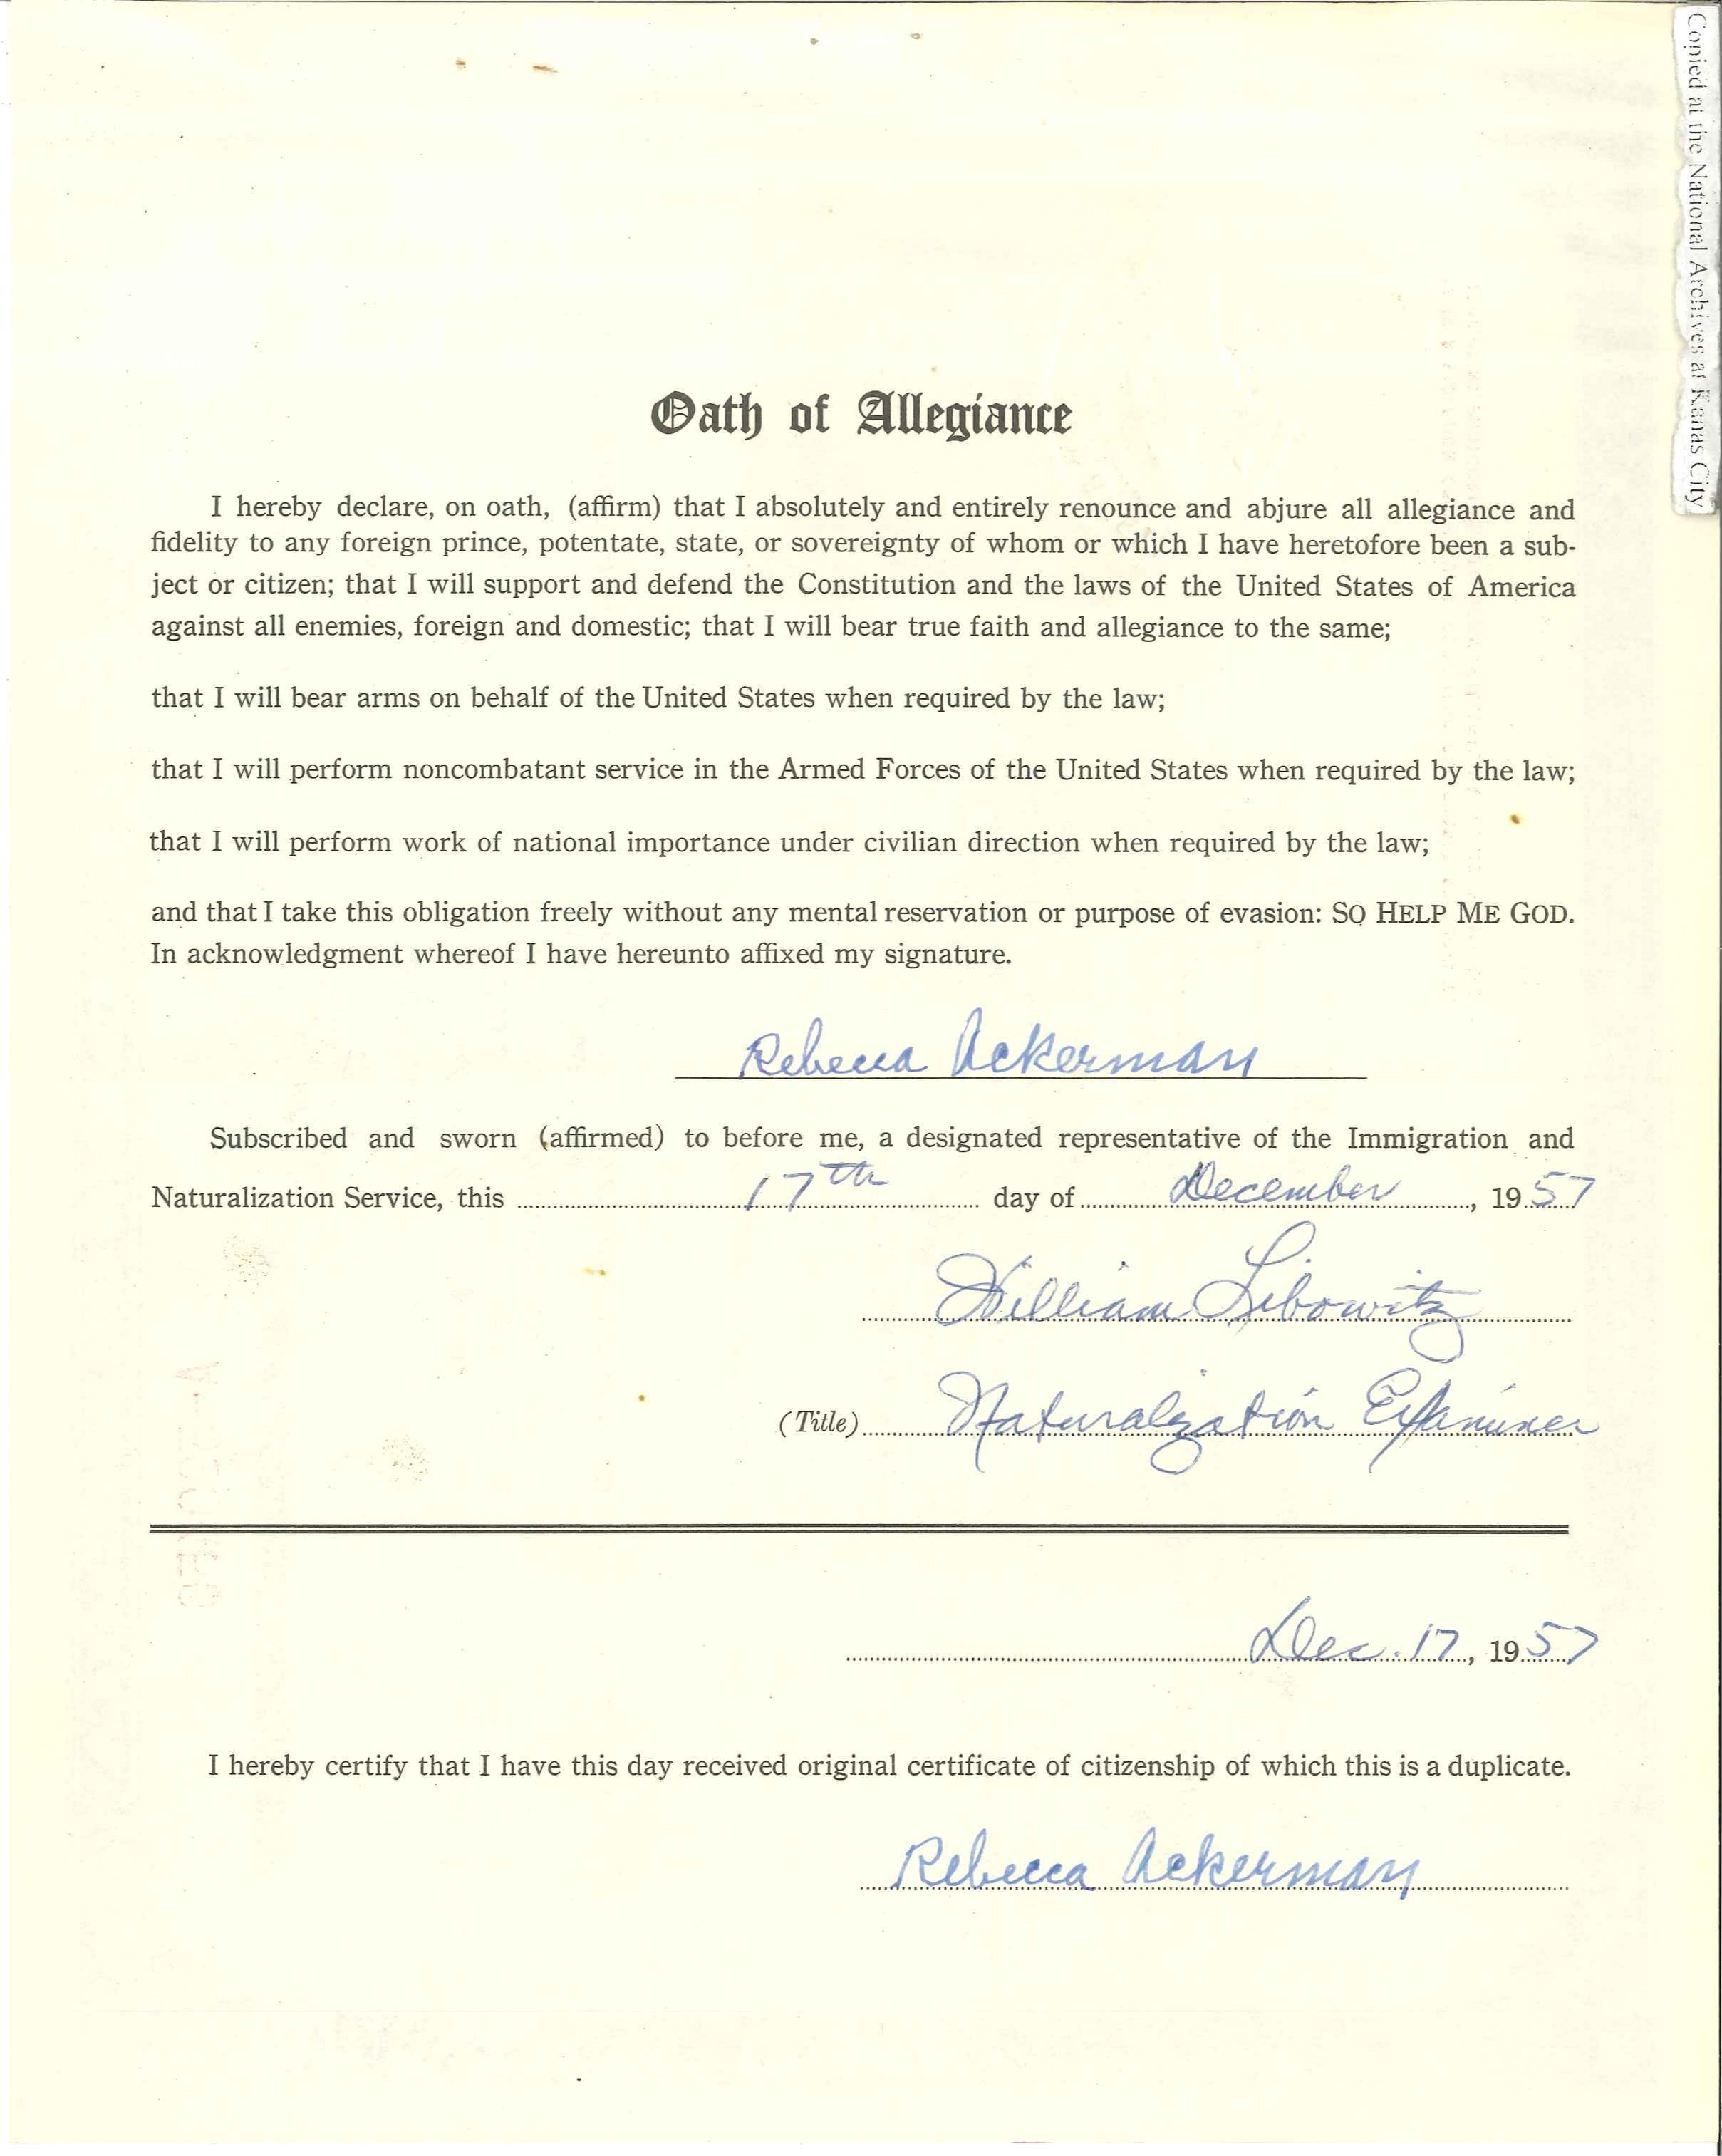 Copied at the National Archives at Kanas City
Oath of Allegiance
I hereby declare, on oath, (affirm) that I absolutely and entirely renounce and abjure all allegiance and
fidelity to any foreign prince, potentate, state, or sovereignty of whom or which I have heretofore been a sub-
ject or citizen; that I will support and defend the Constitution and the laws of the United States of America
against all enemies, foreign and domestic; that I will bear true faith and allegiance to the same;
that I will bear arms on behalf of the United States when required by the law;
that I will perform noncombatant service in the Armed Forces of the United States when required by the law;
that I will perform work of national importance under civilian direction when required by the law;
and that I take this obligation freely without any mental reservation or purpose of evasion: SO HELP ME GOD.
In acknowledgment whereof I have hereunto affixed my signature.
Rebecca Ackerman
Subscribed and sworn (affirmed) to before me, a designated representative of the Immigration and
Naturalization Service, this 17th day of December, 1957
William Libowitz
(Title) Naturalization Examiner
Dec. 17, 1957
I hereby certify that I have this day received original certificate of citizenship of which this is a duplicate.
Rebecca Ackerman